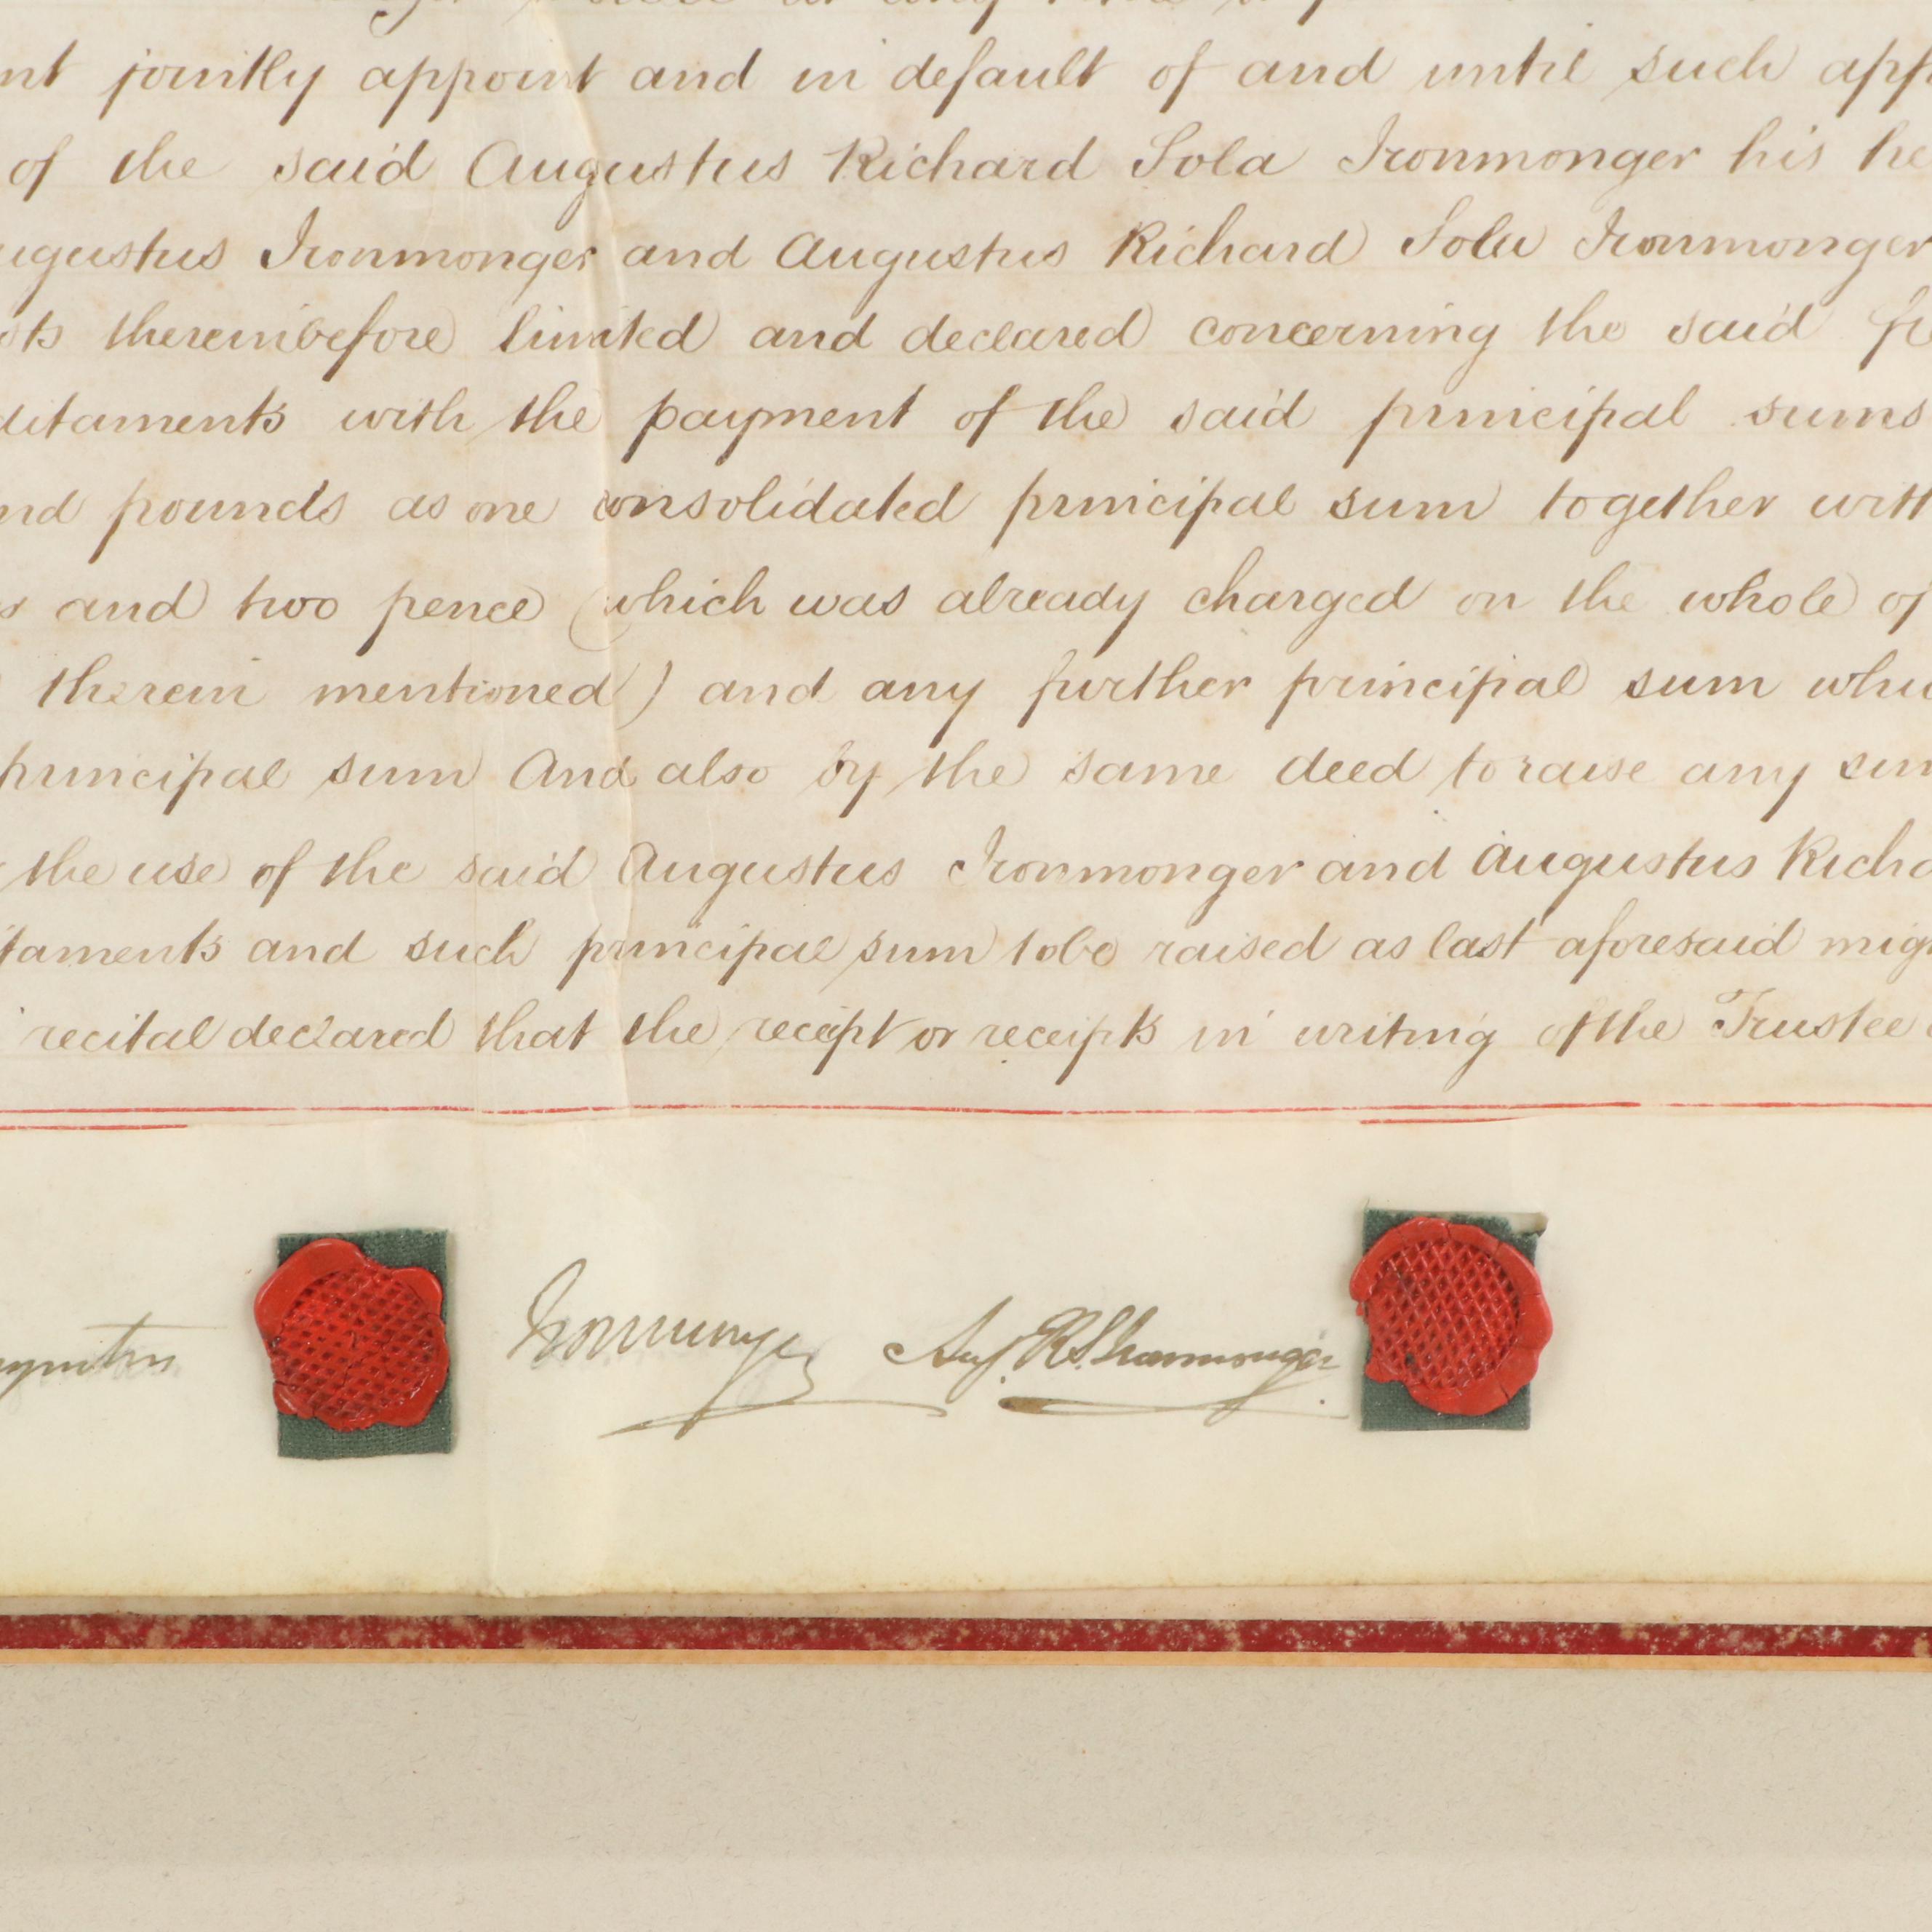 nt jointly appoint and in default of and until such app
of the said Augustus Richard Sola Ironmonger his he
ugustus Ironmonger and Augustus Richard Sola Ironmonger
sts thereinbefore limited and declared concerning the said fr
ditaments with the payment of the said principal sums
nd pounds as one consolidated principal sum together with
s and two pence (which was already charged on the whole of
therein mentioned) and any further principal sum whic
principal sum And also by the same deed to raise any sum
the use of the said Augustus Ironmonger and Augustus Richa
itaments and such principal sum to be raised as last aforesaid migh
recital declared that the receipt or receipts in writing of the Trustee
Ironmonger Aug. R S Ironmonger